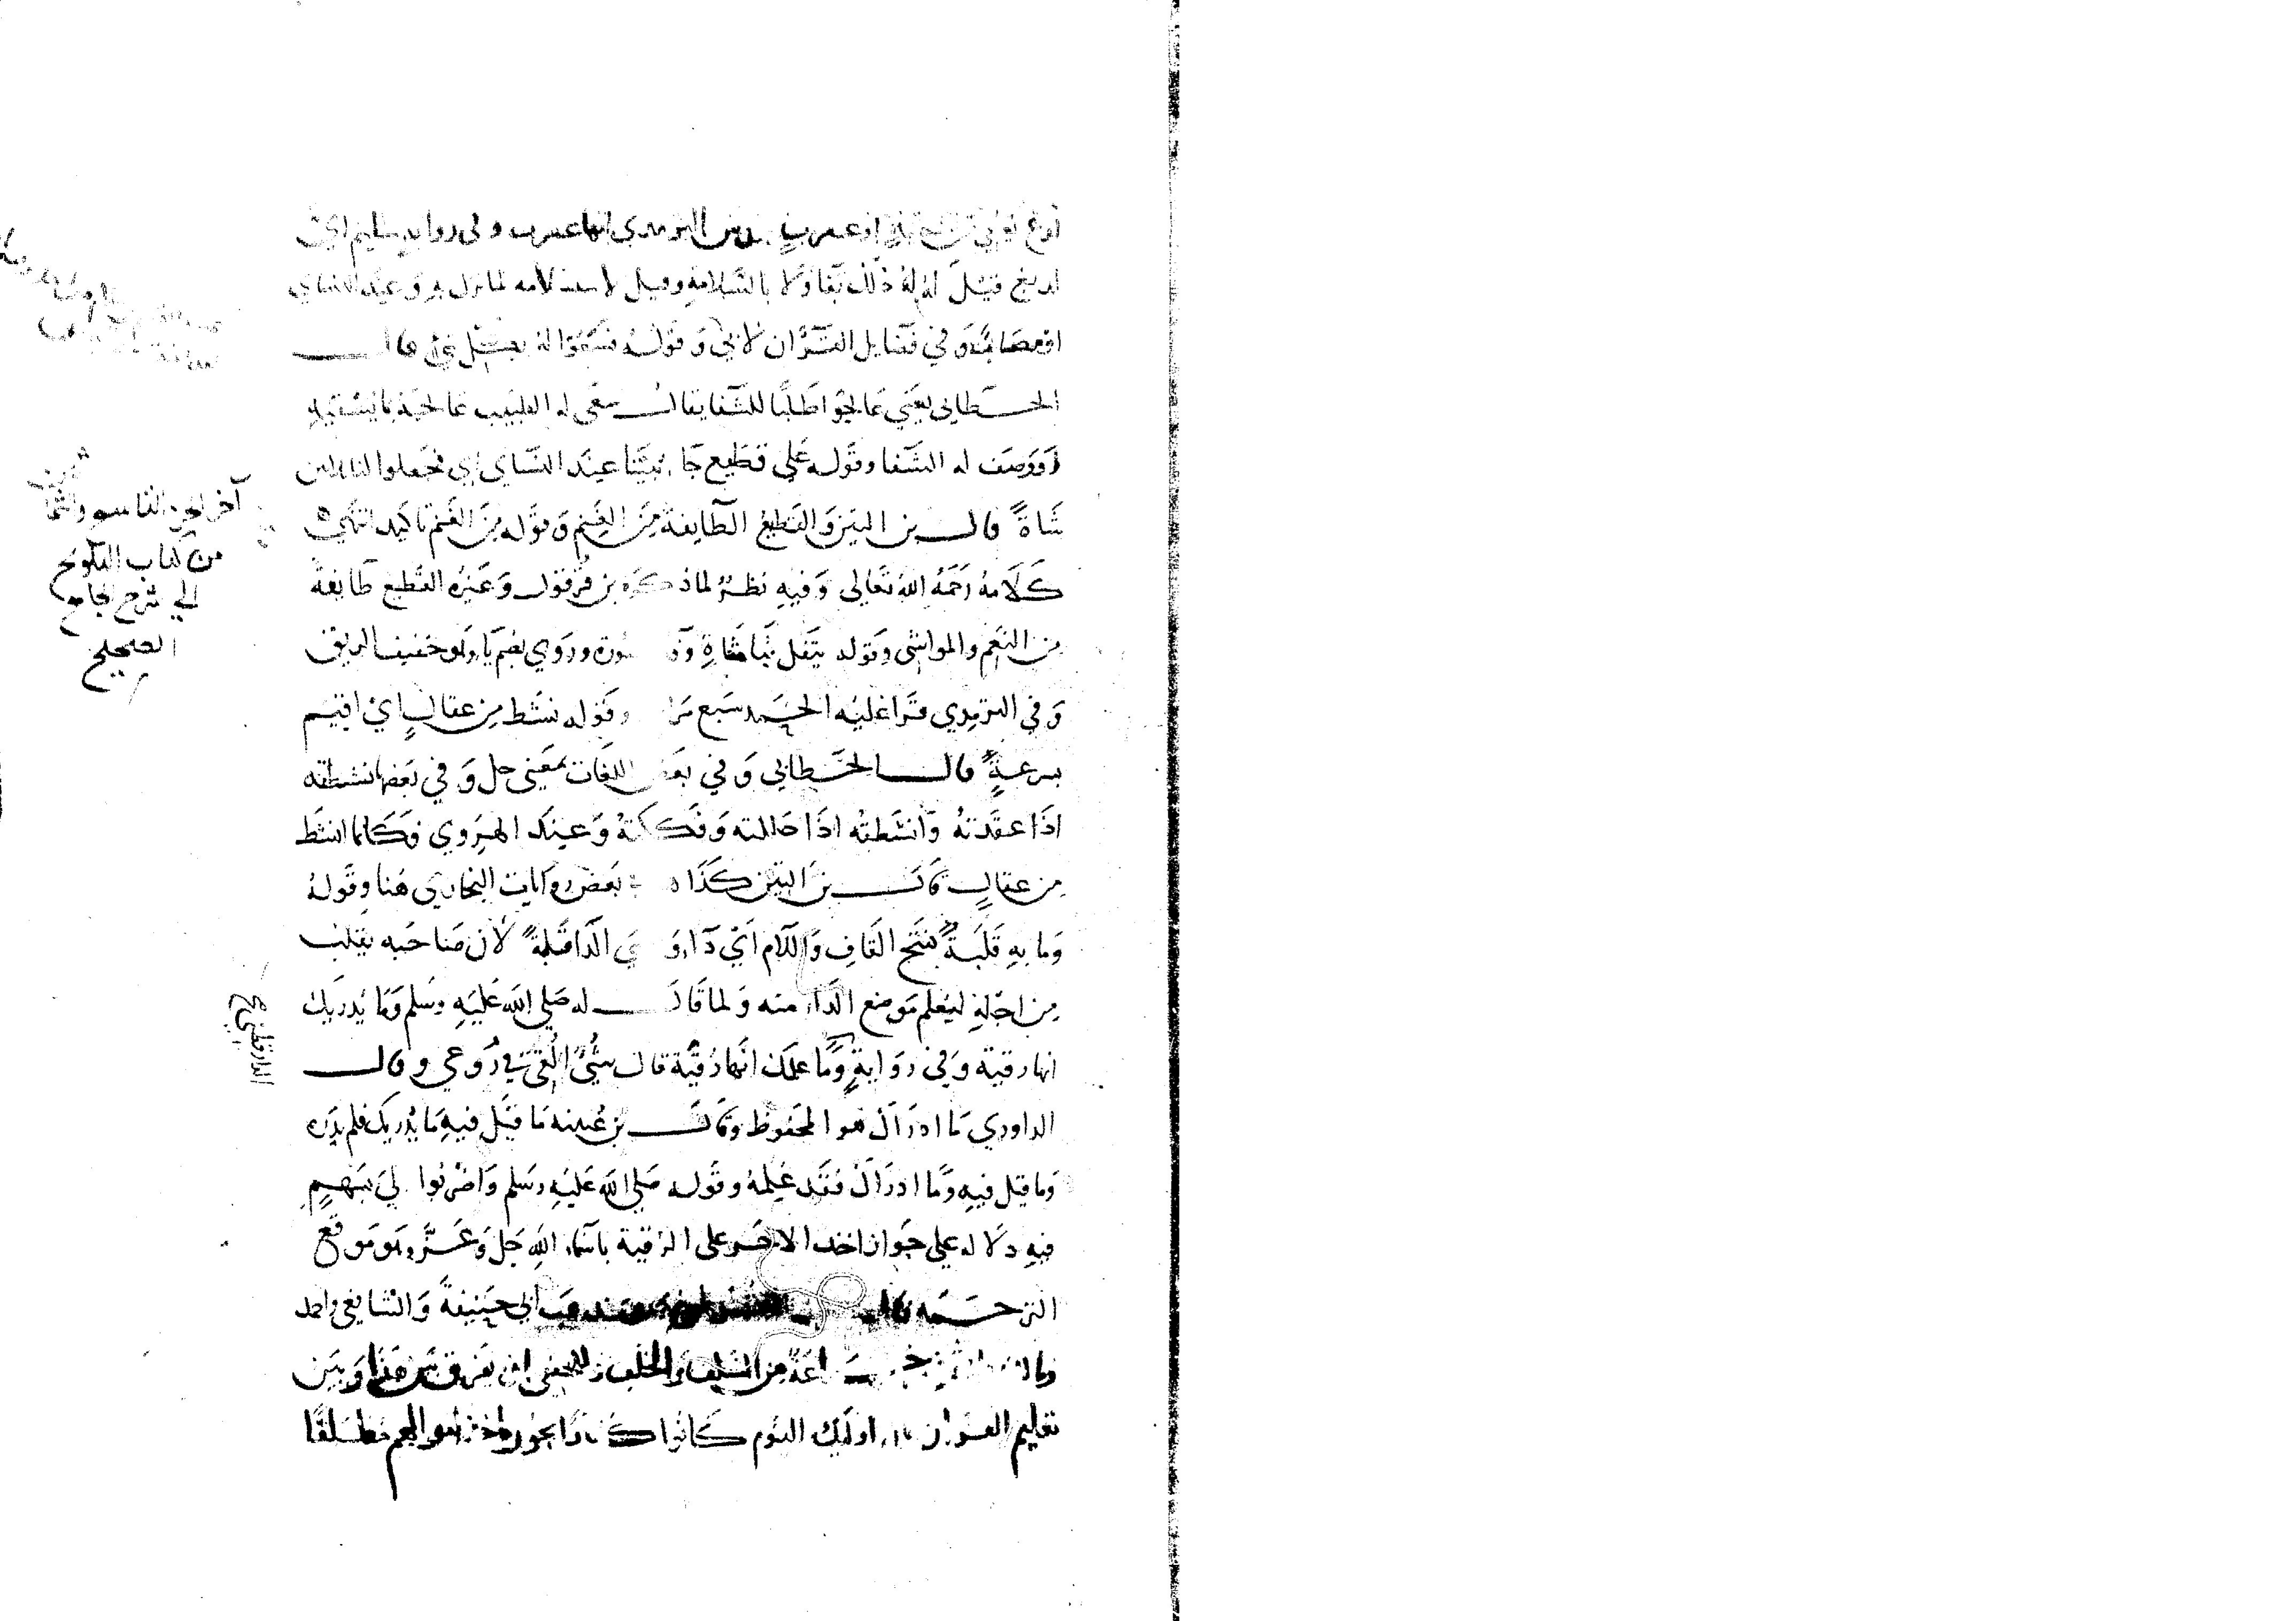 الترمدي انها عقرب وفي رواية سليم اي
لديغ قيل انه له ذلك تفاولا بالسلامة وقيل لاستسلامه لما نزل به وعند النساي
او مصاب وفي فضايل القران لابي وقوله فسعوا له بكل شي قال
الخطابي يعني عالجوا طلبا للشفا يقال سعى له الطبيب عالجه بما يشفيه
او وصف له الشفا وقوله علي قطيع جا مبينا عند النساي اي فجعلوا لنا ثلاثين
شاة قال بن التين والقطيع الطايفة من الغنم وقوله من الغنم تاكيد انتهي
كلامه رحمه الله تعالى وفيه نظر لما ذكره بن قرقول وغيره القطيع طايفة
من النعم والمواشي وقوله يتفل بتا مثناة وروي بضم يا وهو خفيف الريق
وفي الترمدي قرا عليه الحمد سبع مرات وقوله نشط من عقال اي اقيم
بسرعة قال الخطابي وفي بعض اللغات بمعنى حل وفي بعضها نشطته
اذا عقدته وانشطته اذا حللته وفككته وعند الهروي فكانما انشط
من عقال قال بن التين كذا بعض روايات البخاري هنا وقوله
وما به قلبة بفتح القاف واللام اي دا الدا قلبة لان صاحبه يقلب
من اجله ليعلم موضع الدا منه ولما قال له صلى الله عليه وسلم وما يدريك
انها رقية وفي رواية وما علمك انها رقية قال شي القي في روعي وقال
الداوري ما ادراك هو المحفوظ وقال بن عيينه ما قيل فيه ما يدريك فلم يدره
وما قيل فيه وما ادراك فقد علمه وقوله صلى الله عليه وسلم واضربوا لي بسهم
فيه دلاله علي جواز اخد الاجر على الرقية باسما الله جل وعز وهو موقع
الترحمه قال ابي حنيفة والشافعي واحمد
جماعة من السلف والخلف وللحنفي ان يفرق بين هذا وبين
تعليم القران بان اوليك القوم كانوا كفارا يجوز اخذ اموالهم مطلقا
آخر الجزء الخامس والثمانين
من كتاب التلويح
الي شرح الجامع
الصحيح
الدارقطني ع